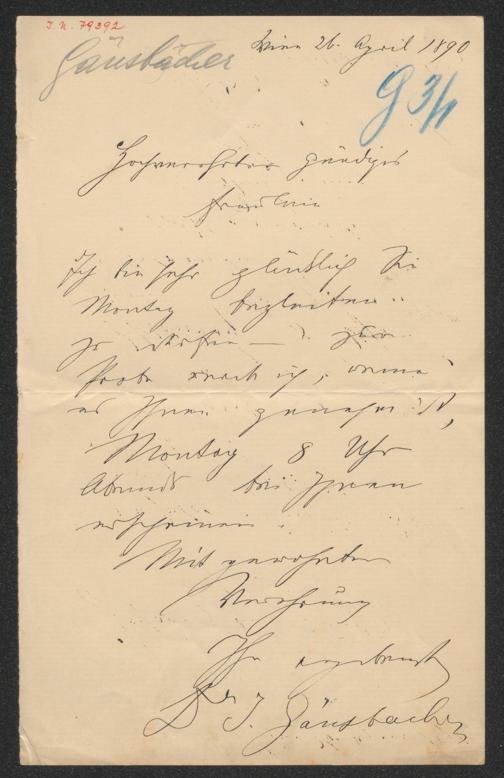 I.N. 79392
Gänsbacher
Wien 26. April 1890
G 3/4
Hochverehrtes gnädiges
Fräulein
Ich bin sehr glücklich Sie
Montag begleiten
zu dürfen — zur
Probe werde ich, wenn
es Ihnen genehm ist,
Montag 8 Uhr
Abends bei Ihnen
erscheinen.
Mit gewohnter
Verehrung
Ihr ergebenst
Dr J. Gänsbacher